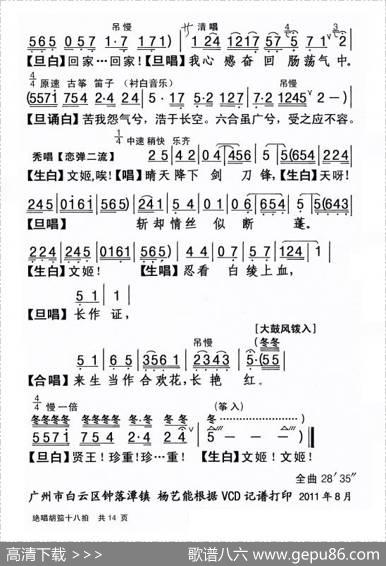 吊慢 サ清唱 4/4 3/4
565 057 1·7 171) 124 1217 57 5 71 2
【旦白】回家…回家!【旦唱】我心 感奋 回 肠荡气 中.
4/4 原速 古筝 笛子 (衬白音乐) 吊慢
(5571 754 2·4 24 5·17 5 125 1217 7·2 1245 2 —)
【旦诵白】苦我怨气兮, 浩于长空。六合虽广兮, 受之应不容。
1/4 中速稍快 乐齐
秃唱【恋弹二流】 25 42 04 456 5(654 224
【生白】文姬,唉!【唱】晴天降下 剑 刀锋,【生白】天呀!
245 0161 565) 51 01 06 654 5(643
【旦唱】 斩却情丝 似 断 蓬.
224 245 0161 565) 44 07 57 124 1
【生白】文姬! 【生唱】忍看 白 绫上血,
51 1
【旦唱】长作 证,
吊慢 [大鼓风拨入]
(冬冬
51 65 3561 2343 5·(55
【合唱】来生 当作 合欢花,长 艳 红.
4/4 慢一倍 (筝入)
冬冬冬冬 冬冬冬冬 冬·冬 冬冬 冬
5571 7571 2·4 24 5 — — —)
【旦白】贤王!珍重!珍…重! 【生白】文姬!文姬!
全曲 28′35″
广州市白云区钟落潭镇 杨艺能根据VCD记谱打印 2011年8月
绝唱胡笳十八拍 共14页
高清下载 >>> 歌谱八六 www.gepu86.com